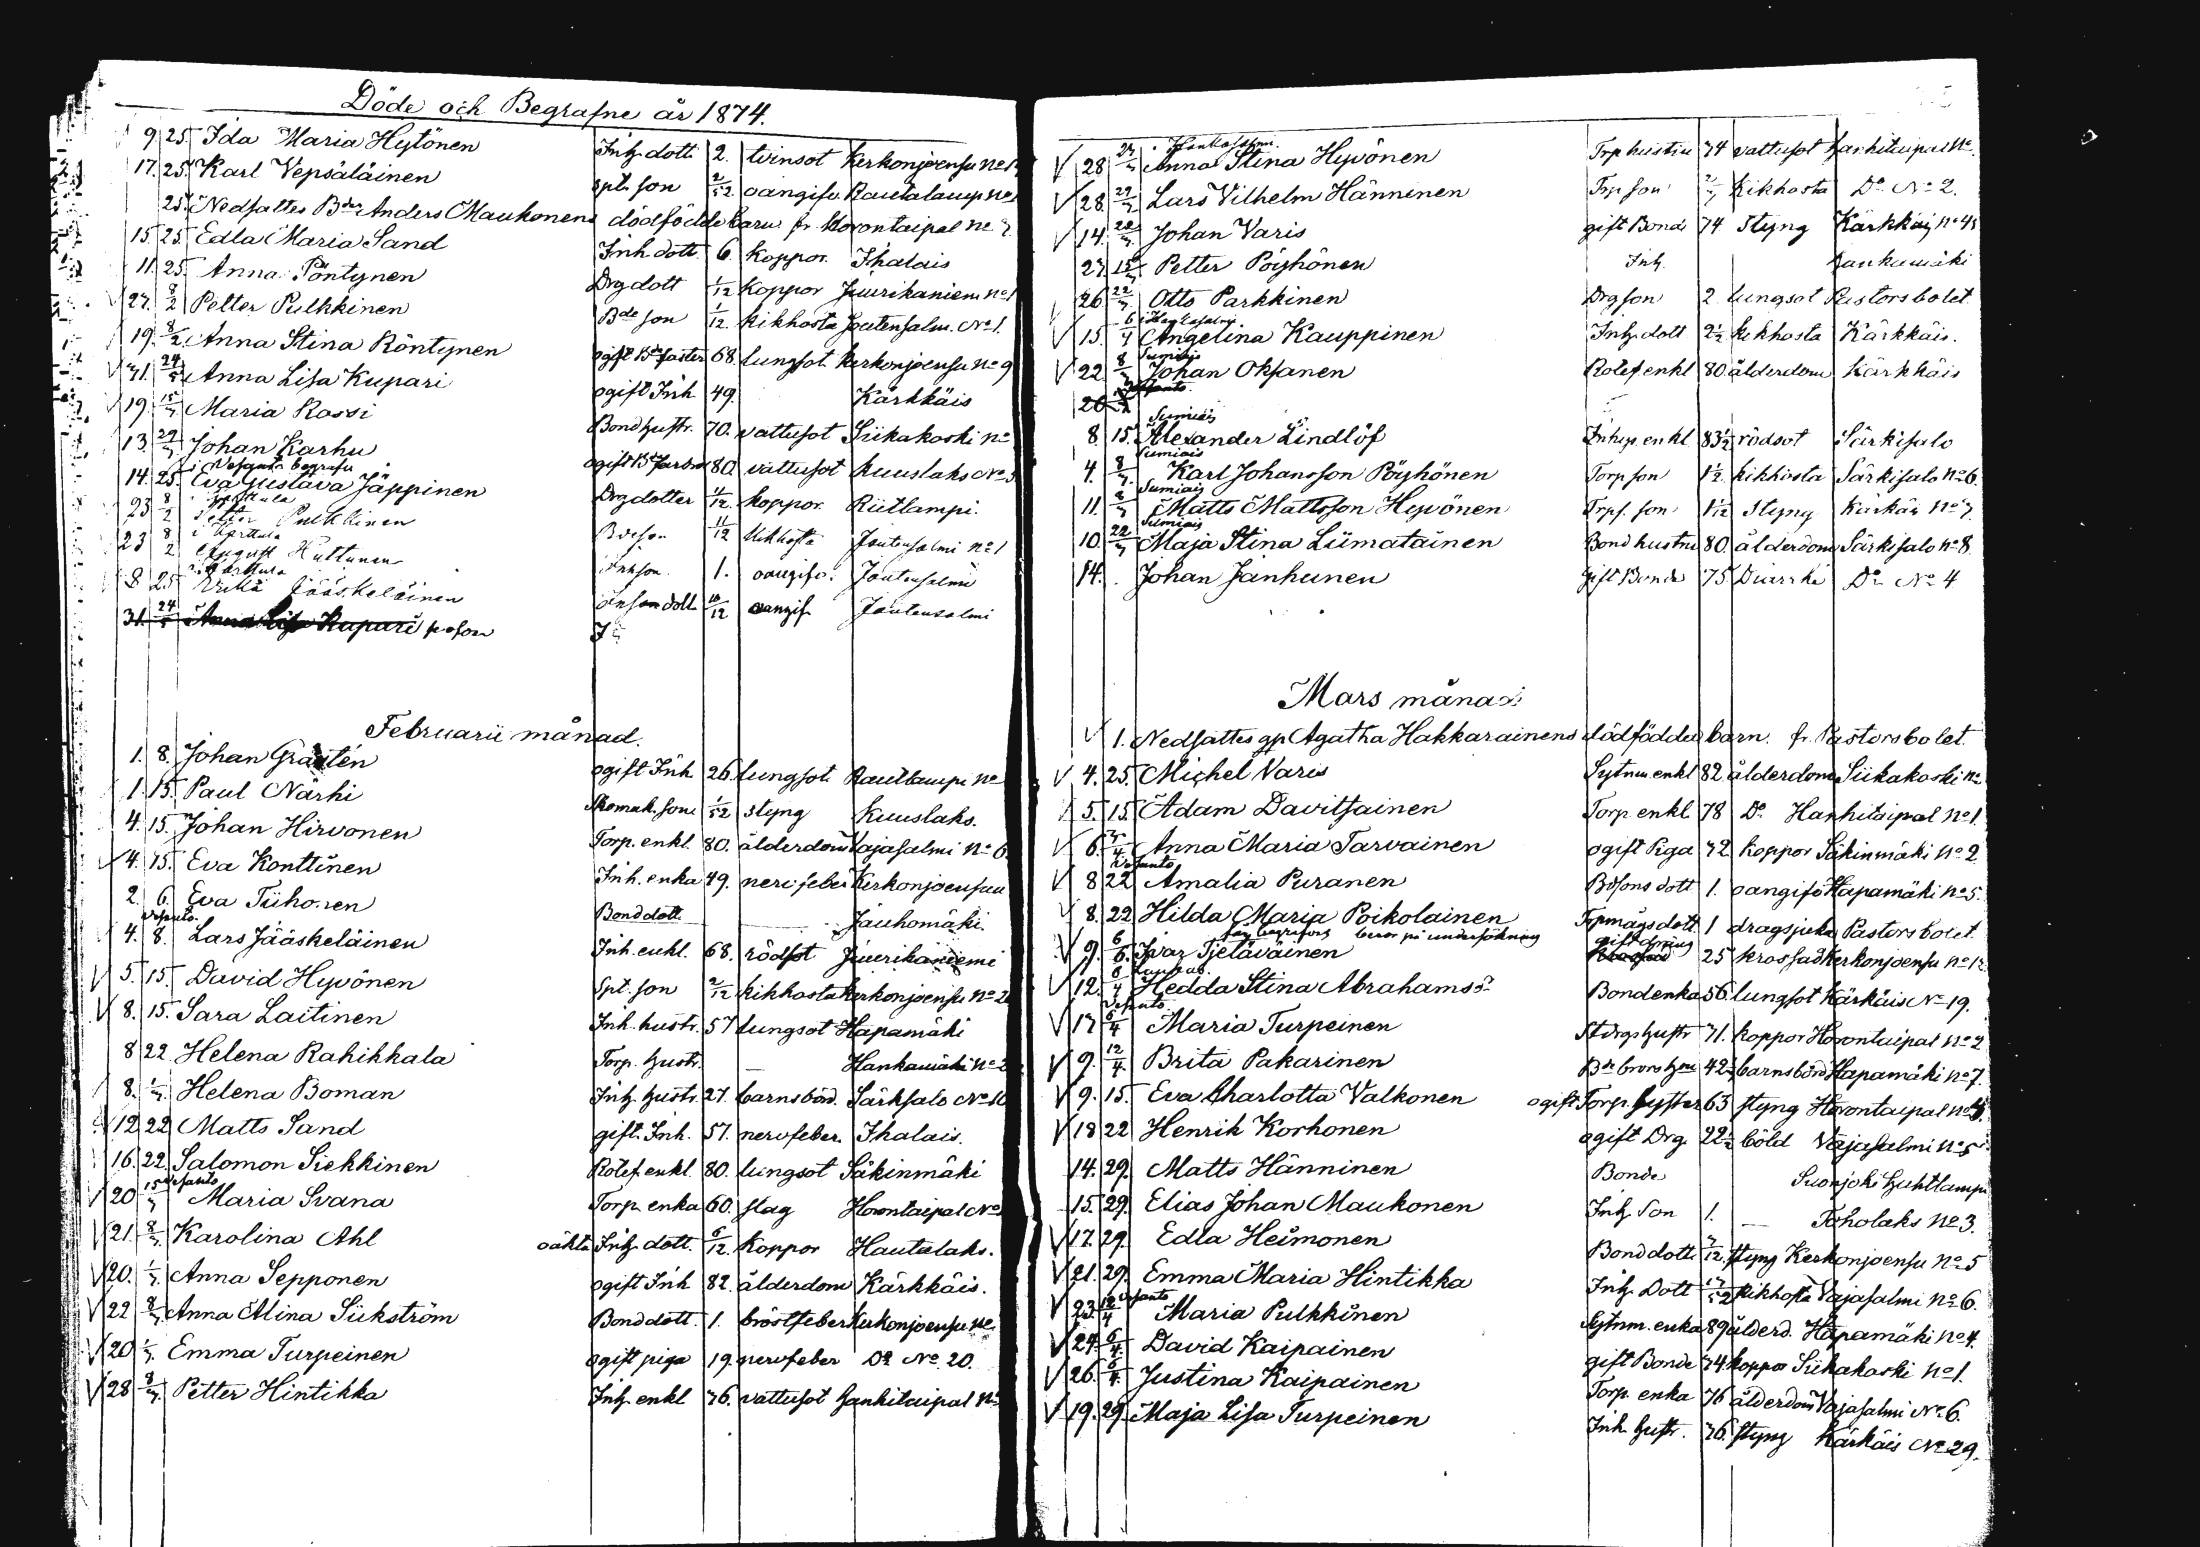 Döde och Begrafne år 1874.
9 25. Ida Maria Hytönen Inh. dott. 2. tvinsot Kerkonjoensu No 1
17. 25. Karl Vepsäläinen spt. son 2/52 oangifv. Rautalamp No
25. Nedsattes Bdn Anders Maukonens dödfödde barn fr. Horontaipal No 2.
15. 25. Edla Maria Sand Inh. dott. 6. koppor. Ihalais
11. 25. Anna Pöntynen Drg dott 1/12 koppor Juurikaniem No 1
27. 8/2 Petter Pulkkinen Bde son 1/12. kikhosta Joutensalm. No 1.
19. 8/2 Anna Stina Röntynen ogift Bde faster 68. lungsot Kerkonjoensu No 9
31. 24/5 Anna Lisa Kupari ogift Inh 49. Kärkkäis
19. 15/3 Maria Rossi Bond hustr. 70. vattusot Siikakoski No
13. 29/3 Johan Karhu ogift 80. vattusot Kuuslaks No 5
i Vesanto begrafn
14. 25. Eva Gustava Jäppinen Drg dotter 11/12. koppor. Riitlampi.
i Karttula
23 8/2 Petter Pulkkinen Bdeson 11/12 kikhosta Joutensalmi No 1
i Karttula
23 8/2 August Huttunen Inhson 1. oangifv. Joutensalmi
i Karttula
8 25. Erika Jääskeläinen dott. 10/12 oangif. Joutensalmi
31. 24/5 Anna Lisa Kupari
Februarii månad.
1. 8. Johan Grastén ogift Inh. 26. lungsot. Rautlampi No
1. 15. Paul Närhi Skomak. son 1/52 styng Kuuslaks.
4. 15. Johan Hirvonen Torp. enkl. 80. ålderdom Vajasalmi No 6.
4. 15. Eva Konttinen Inh. enka 49. nervfeber Kerkonjoensuu
2. 6. Eva Tiihonen Bond dott. Jauhomäki.
Vesanto.
4. 8. Lars Jääskeläinen Inh. enkl. 68. rödsot Juurikaniemi
5. 15. David Hyvönen Spt. son 2/12 kikhosta Kerkonjoensu No 20
8. 15. Sara Laitinen Inh. hustr. 57 lungsot Hapamäki
8 22 Helena Rahikkala Torp. hustr. — Hankamäki No 2
8. 1/3 Helena Boman Inh. hustr. 27. barnsbörd. Särksalo No 10
12 22 Matts Sand gift. Inh. 57. nervfeber. Ihalais.
16. 22. Salomon Siekkinen Rotef. enkl. 80. lungsot Säkinmäki
Vesanto
20 15/3 Maria Svana Torp. enka 60. slag Horontaipal No
21. 8/3 Karolina Ahl oäkta Inh. dott. 6/12. koppor Hautalaks.
20. 1/3. Anna Sepponen ogift Inh 82. ålderdom Kärkkäis.
22 8/3 Anna Alina Siikström Bond dott. 1. bröstfeber Kerkonjoensu No.
20 1/3. Emma Turpeinen ogift piga 19. nervfeber Do No. 20.
28 8/3. Petter Hintikka Inh. enkl 76. vattusot Hankitaipal No
i Hankasalmi
28 29/3 Anna Stina Hyvönen Trp hustru 74 vattusot Hankitaipal No.
28. 29/3 Lars Vilhelm Hänninen Trp son 2/3 kikhosta Do No 2.
14. 22/3 Johan Varis gift Bonde 74 styng Kärkkäis No 45
27. 15/3 Petter Pöyhönen Inh. Hankamäki
26 22/3 Otto Parkkinen Drg son 2 lungsot Pastorsbolet
i Hankasalmi
15. 6/4 Angelina Kauppinen Inh. dott 2 1/2 kikhosta Kärkkäis.
Sumiais
22 8/3 Johan Oksanen Rotef enkl 80. ålderdom Kärkkäis
Vesanto
20
Sumiais
8. 15. Alexander Lindlöf Inhys enkl 83 1/2 rödsot Särkisalo
Sumiais
4. 8/3 Karl Johansson Pöyhönen Torp son 1 1/2 kikhosta Särkisalo No 6.
Sumiais
11. 8/3 Matts Mattsson Hyvönen Trps. son 1 1/12 styng Kärkäis No 7
Sumiais
10 22/3 Maja Stina Liimatainen Bond hustru 80 ålderdom Särkisalo No 8.
14. Johan Janhunen gift Bonde 75 Diarrhé Do No 4
Mars månad.
1. Nedsattes gp Agatha Hakkarainens dödfödda barn. fr. Pastorsbolet.
4. 25. Michel Varis Sytnm. enkl 82 ålderdom Siikakoski No
5. 15. Adam Davitsainen Torp enkl. 78 Do Hankitaipal No 1.
6. 3/4 Anna Maria Tarvainen ogift Piga 72 koppor Säkinmäki No 2
Vesanto
8 22 Amalia Puranen Bdsons dott 1. oangifv Hapamäki No 5.
8. 22 Hilda Maria Poikolainen Trpmågs dott. 1 dragsjuka Pastorsbolet.
får begrafvas beror på undersökning
9. 6/6. Ivar Tjeläväinen gift dräng 25 krossad Kerkonjoensu No 12
12. 6/4 Hedda Stina Abrahamsdr Bondenka 56 lungsot Kärkäis No 19.
Vesanto.
17 6/4 Maria Turpeinen Stdrgs hustr 71. koppor Horontaipal No 2
9. 12/4. Brita Pakarinen Bde brors hru 42 1/2 barnsbörd Hapamäki No 7.
9. 15. Eva Charlotta Valkonen ogift Torp. syster 63 styng Horontaipal No 3.
18 22 Henrik Korhonen ogift Drg. 22 1/2 böld Vajasalmi No 5
14. 29. Matts Hänninen Bonde Suonjoki Huhtlampi
15. 29. Elias Johan Maukonen Inh. Son 1. — Toholaks No 3.
17. 29. Edla Heimonen Bond dott. 7/12. styng Kerkonjoensu No 5
21. 29. Emma Maria Hintikka Inh. Dott /52 kikhosta Vajasalmi No 6.
Vesanto
23. 12/4 Maria Pulkkinen Sytnm. enka 89 ålderd. Hapamäki No 4.
24. 6/4. David Kaipainen gift Bonde 74. koppor Siikakoski No 1.
26. 6/4. Justina Kaipainen Torp. enka 76 ålderdom Vajasalmi No 6.
19. 29 Maja Lisa Turpeinen Inh. hustr. 76. styng Kärkäis No 29.